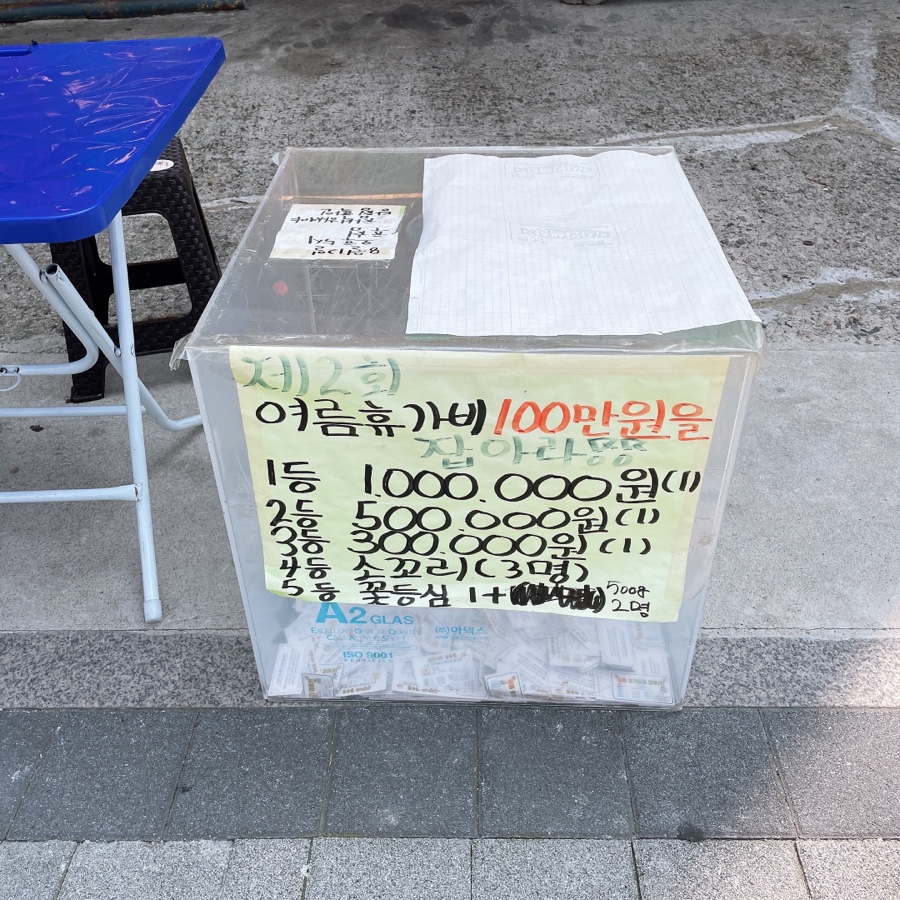 제2회
여름휴가비 100만원을
잡아라
1등 1.000.000원(1)
2등 500.000원(1)
3등 300.000원(1)
4등 소꼬리(3명)
5등 꽃등심 1+ 500g
2명
A2 GLAS
EXCELLENT OPTICAL QUALITY
CAST ACRYLIC SHEET
(주)아덱스
ISO 9001
CERTIFIED
오후 5시
추첨